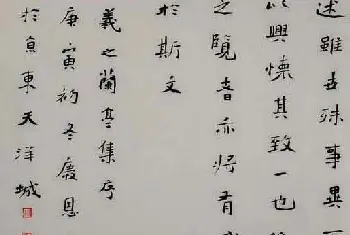 述雖世殊事異
以興懷其致一也
之覽者亦將有
於斯文
羲之蘭亭集序
庚寅初冬慶恩
於京東天洋城